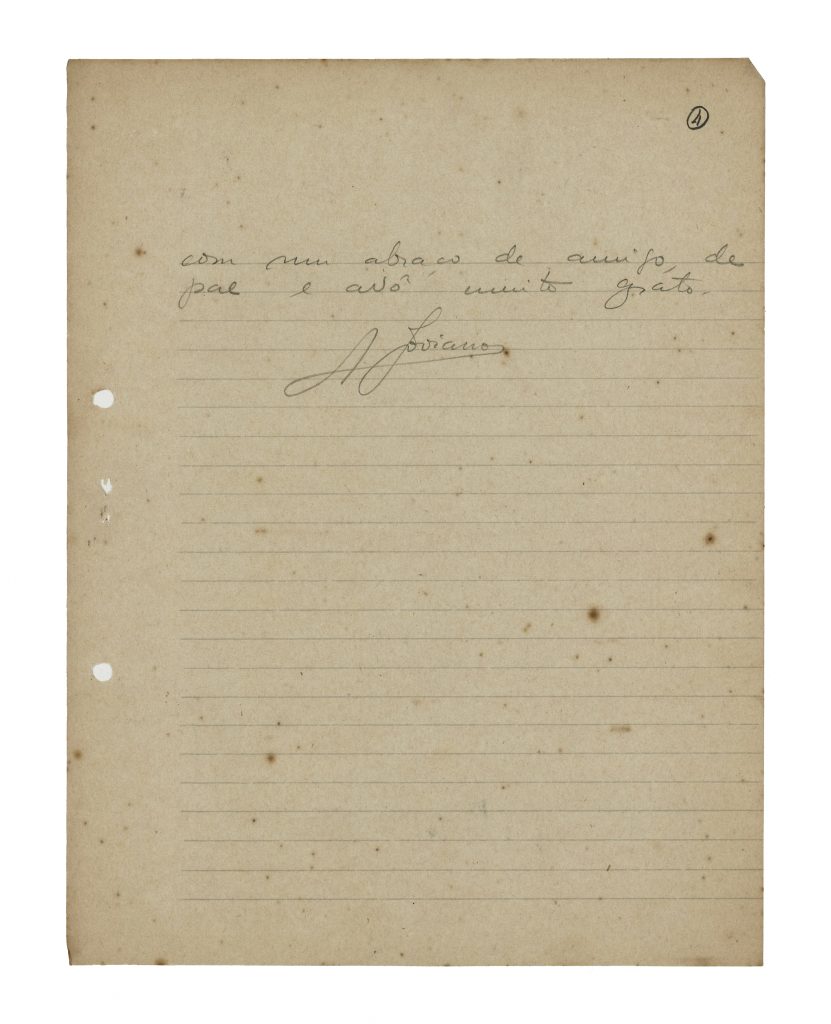 4
com um abraço de amigo, de
pae e avô muito gráto.
A Joviano